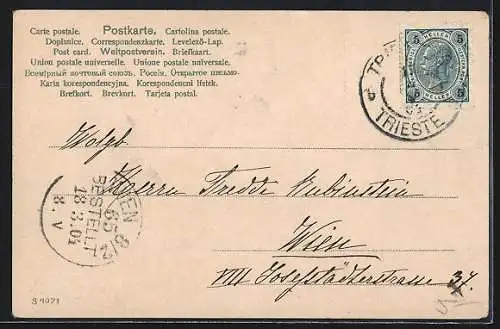 Carte postale. Postkarte. Cartolina postale.
Dopisnice. Correspondenzkarte. Levelező-Lap.
Post card. Weltpostverein. Briefkaart.
Union postale universelle. Unione postale universale.
Всемірный почтовый союзъ. Россія. Открытое письмо.
Karta korespondencyjna. Korespondenčni lístek.
Brefkort. Brevkort. Tarjeta postal.
5 HELLER 5
TRIESTE
Wolgb.
Herrn Fredde Rubinstein
Wien
VIII Josefstädterstrasse 34.
WIEN 8/1
65
BESTELLT
18 3.01
8. V
S 1021